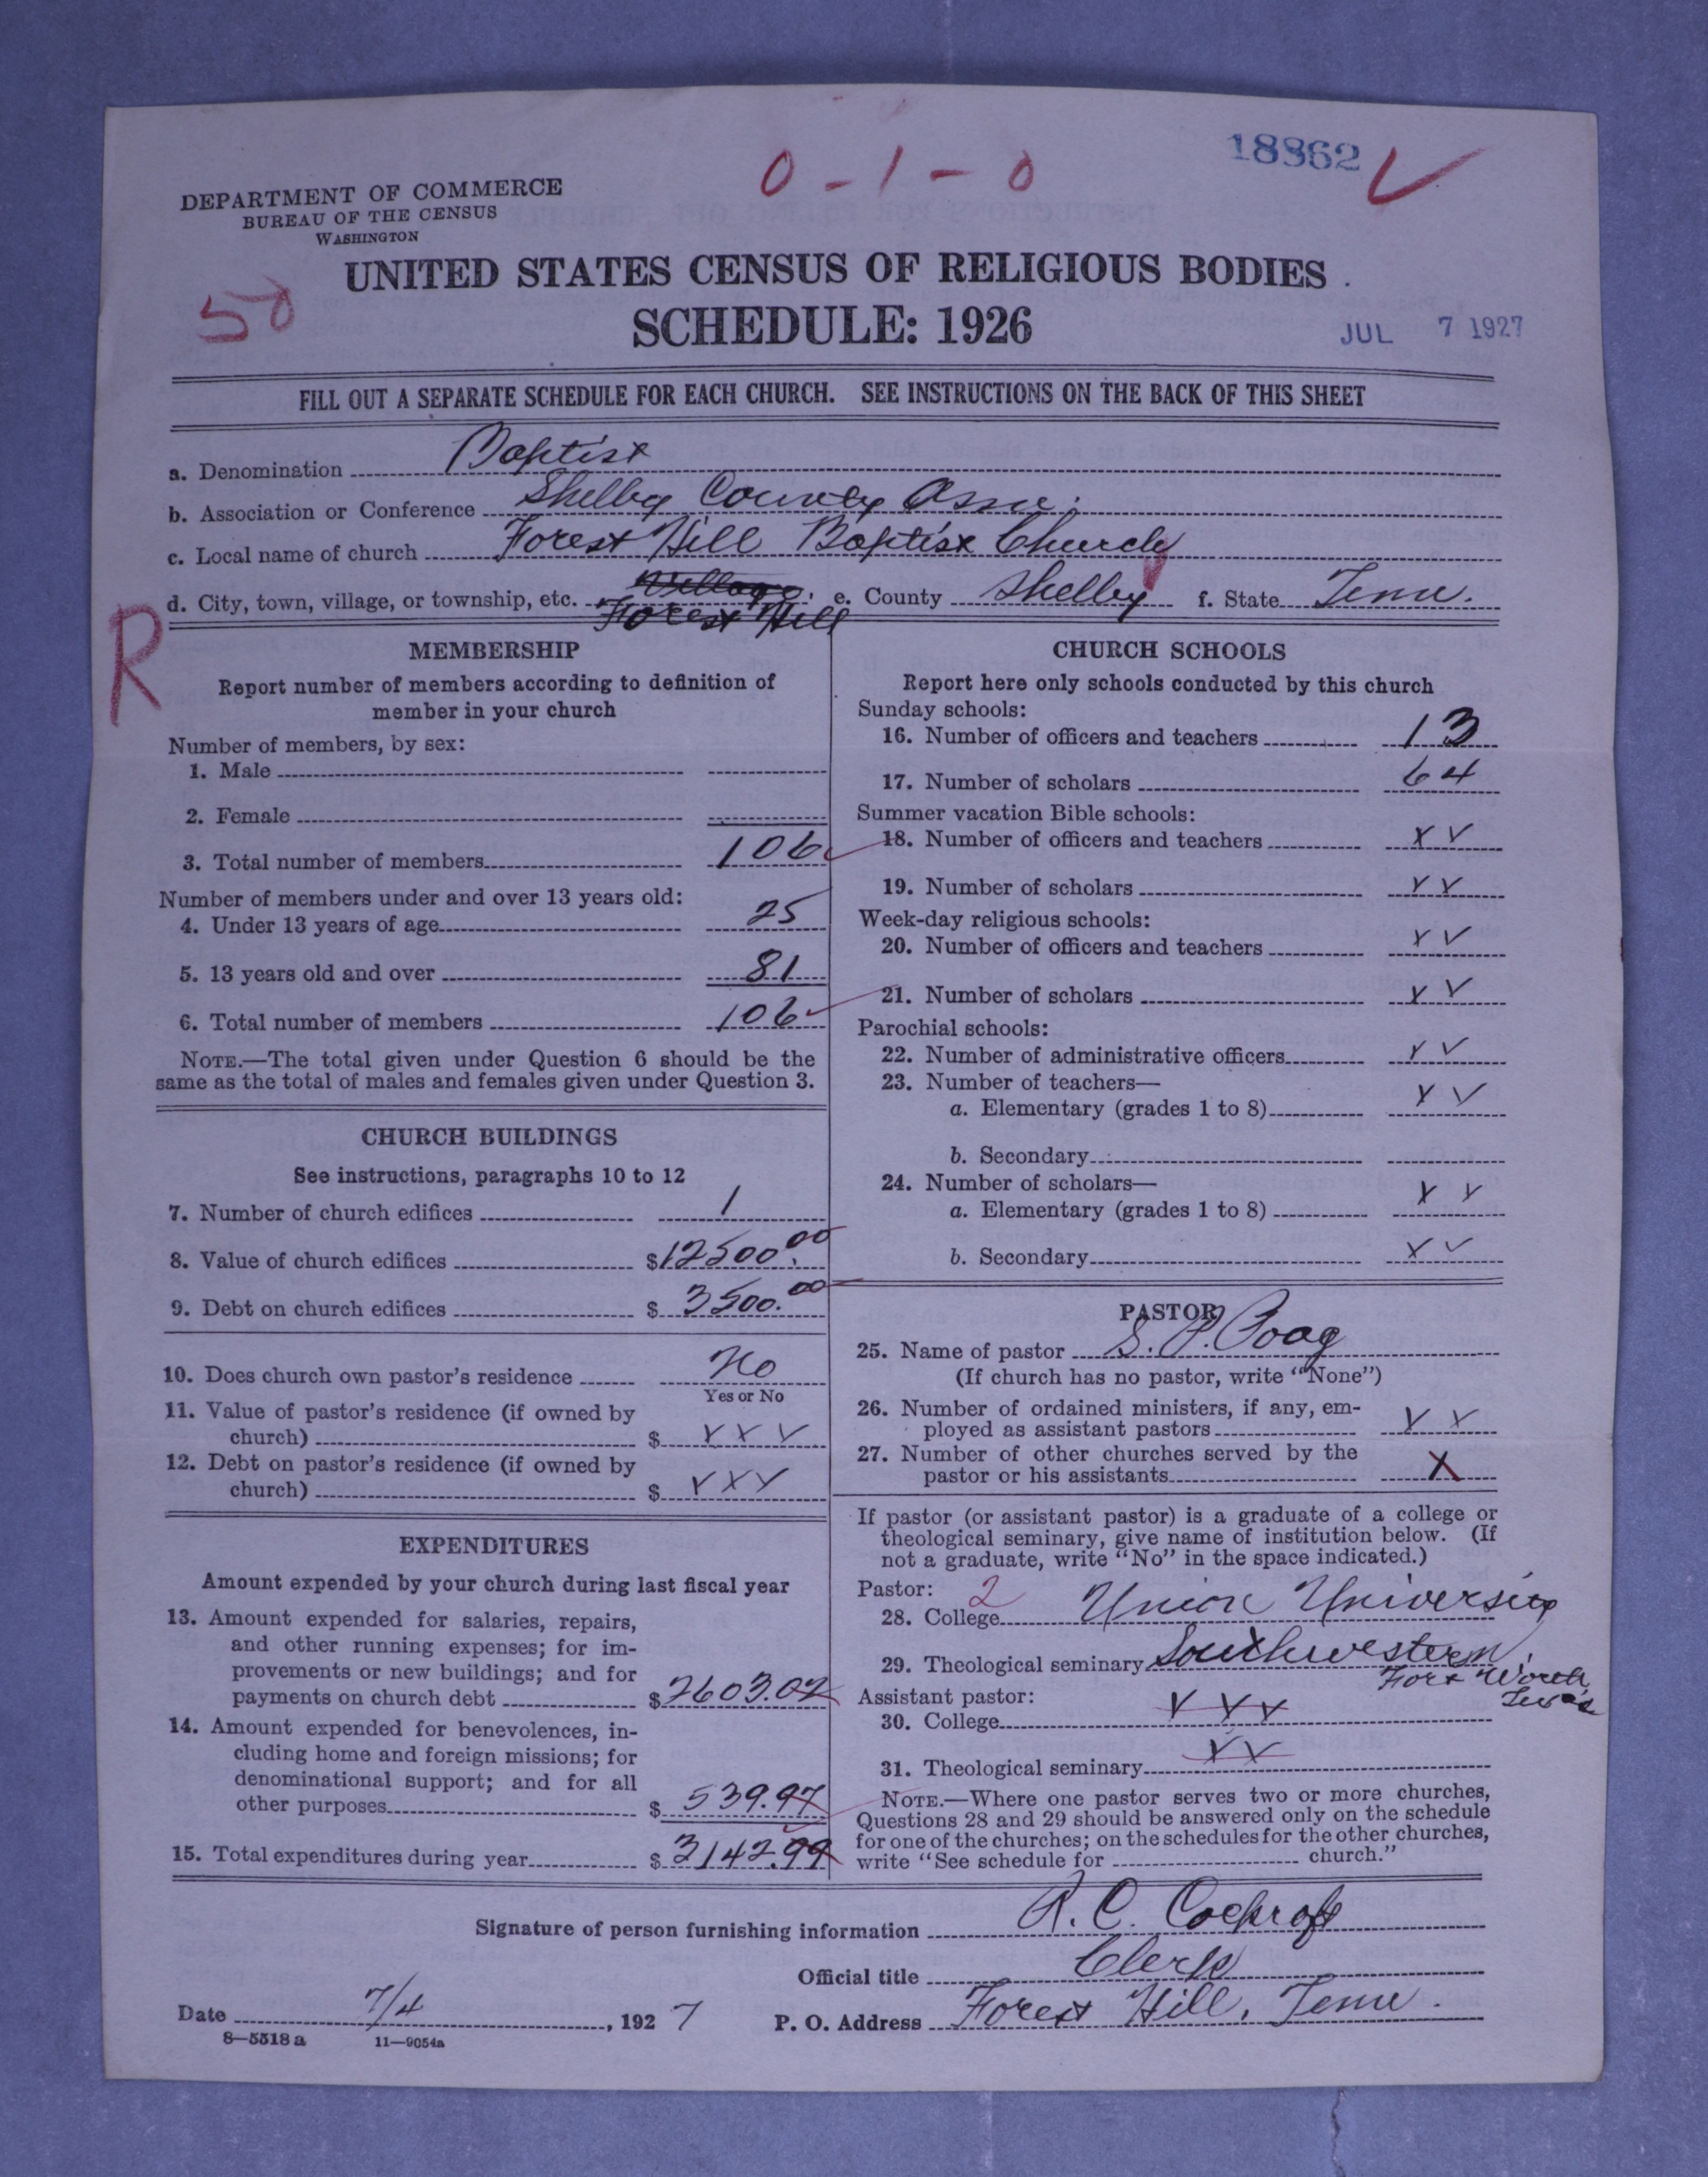 0 - 1 - 0
18862
DEPARTMENT OF COMMERCE
BUREAU OF THE CENSUS
WASHINGTON
UNITED STATES CENSUS OF RELIGIOUS BODIES
50
SCHEDULE: 1926
JUL 7 1927
FILL OUT A SEPARATE SCHEDULE FOR EACH CHURCH. SEE INSTRUCTIONS ON THE BACK OF THIS SHEET
a. Denomination Baptist
b. Association or Conference Shelby County Assn.
c. Local name of church Forest Hill Baptist Church
d. City, town, village, or township, etc. Village Forest Hill e. County Shelby f. State Tenn.
R
MEMBERSHIP
Report number of members according to definition of
member in your church
Number of members, by sex:
1. Male
2. Female
3. Total number of members 106
Number of members under and over 13 years old:
4. Under 13 years of age 25
5. 13 years old and over 81
6. Total number of members 106
NOTE.—The total given under Question 6 should be the
same as the total of males and females given under Question 3.
CHURCH BUILDINGS
See instructions, paragraphs 10 to 12
7. Number of church edifices 1
8. Value of church edifices $12500.00
9. Debt on church edifices $3500.00
10. Does church own pastor's residence No
Yes or No
11. Value of pastor's residence (if owned by
church) $ X X X
12. Debt on pastor's residence (if owned by
church) $ X X X
EXPENDITURES
Amount expended by your church during last fiscal year
13. Amount expended for salaries, repairs,
and other running expenses; for im-
provements or new buildings; and for
payments on church debt $2603.02
14. Amount expended for benevolences, in-
cluding home and foreign missions; for
denominational support; and for all
other purposes $539.97
15. Total expenditures during year $3142.99
CHURCH SCHOOLS
Report here only schools conducted by this church
Sunday schools:
16. Number of officers and teachers 13
17. Number of scholars 64
Summer vacation Bible schools:
18. Number of officers and teachers X X
19. Number of scholars X X
Week-day religious schools:
20. Number of officers and teachers X X
21. Number of scholars X X
Parochial schools:
22. Number of administrative officers X X
23. Number of teachers—
a. Elementary (grades 1 to 8) X X
b. Secondary
24. Number of scholars—
a. Elementary (grades 1 to 8) X X
b. Secondary X X
PASTOR
25. Name of pastor S. P. Poag
(If church has no pastor, write "None")
26. Number of ordained ministers, if any, em-
ployed as assistant pastors X X
27. Number of other churches served by the
pastor or his assistants X
If pastor (or assistant pastor) is a graduate of a college or
theological seminary, give name of institution below. (If
not a graduate, write "No" in the space indicated.)
Pastor: 2
28. College Union University
29. Theological seminary Southwestern,
Fort Worth,
Texas
Assistant pastor:
30. College X X X
31. Theological seminary X X
NOTE.—Where one pastor serves two or more churches,
Questions 28 and 29 should be answered only on the schedule
for one of the churches; on the schedules for the other churches,
write "See schedule for church."
Signature of person furnishing information R. C. Cockroft
Official title Clerk
Date 7/4, 1927 P. O. Address Forest Hill, Tenn.
8—5518 a 11—9054a